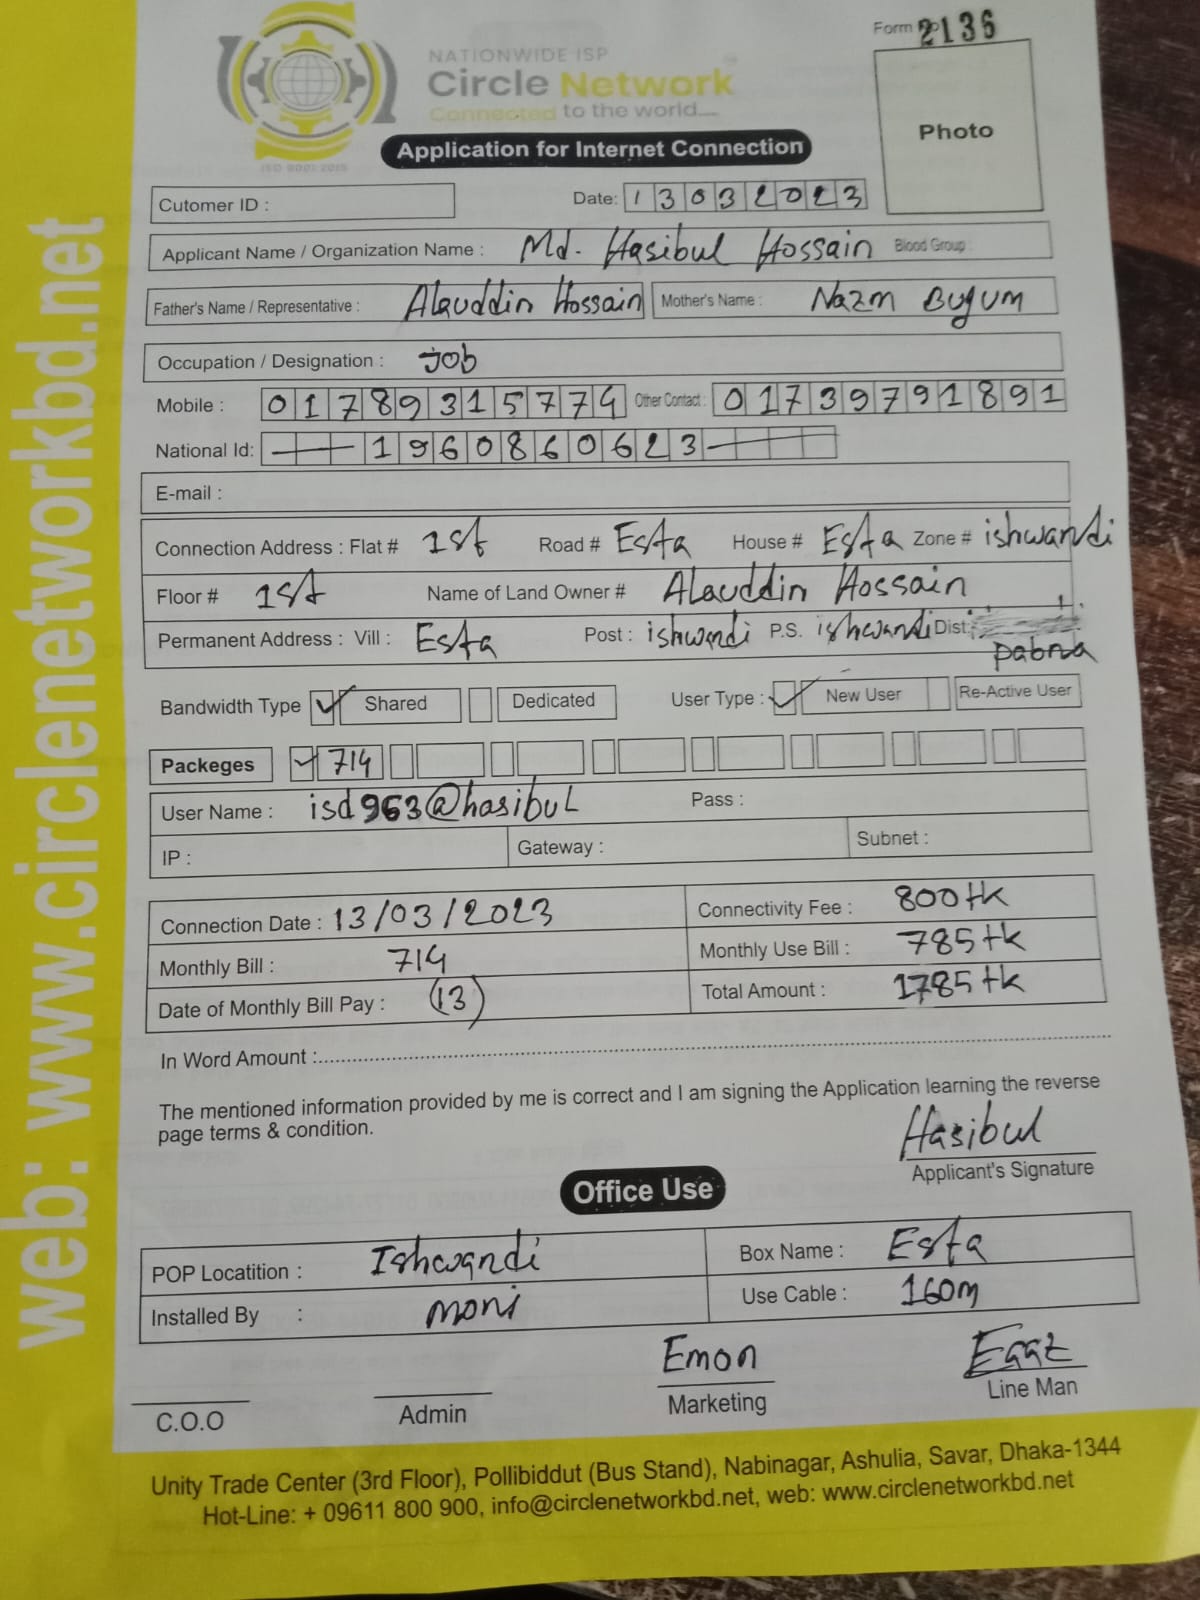 Form 2136
NATIONWIDE ISP
Circle Network
Connected to the world....
ISO 9001:2015
Photo
Application for Internet Connection
Cutomer ID : Date: 13032023
Applicant Name / Organization Name : Md. Hasibul Hossain Blood Group :
Father's Name / Representative : Alauddin Hossain Mother's Name : Nazm Bugum
Occupation / Designation : job
Mobile : 01789315774 Other Contact : 01739791891
National Id: 1960860623
E-mail :
Connection Address : Flat # 1st Road # Esta House # Esta Zone # ishwardi
Floor # 1st Name of Land Owner # Alauddin Hossain
Permanent Address : Vill : Esta Post : ishwrdi P.S. ishwardi Dist: pabna
Bandwidth Type Shared Dedicated User Type : New User Re-Active User
Packeges 714
User Name : isd963@hasibul Pass :
IP : Gateway : Subnet :
Connection Date : 13/03/2023 Connectivity Fee : 800tk
Monthly Bill : 714 Monthly Use Bill : 785tk
Date of Monthly Bill Pay : (13) Total Amount : 1785tk
In Word Amount :
The mentioned information provided by me is correct and I am signing the Application learning the reverse
page terms & condition.
Hasibul
Applicant's Signature
Office Use
POP Locatition : Ishwardi Box Name : Esta
Installed By : moni Use Cable : 160m
Emon
C.O.O Admin Marketing Line Man
Unity Trade Center (3rd Floor), Pollibiddut (Bus Stand), Nabinagar, Ashulia, Savar, Dhaka-1344
Hot-Line: + 09611 800 900, info@circlenetworkbd.net, web: www.circlenetworkbd.net
web: www.circlenetworkbd.net